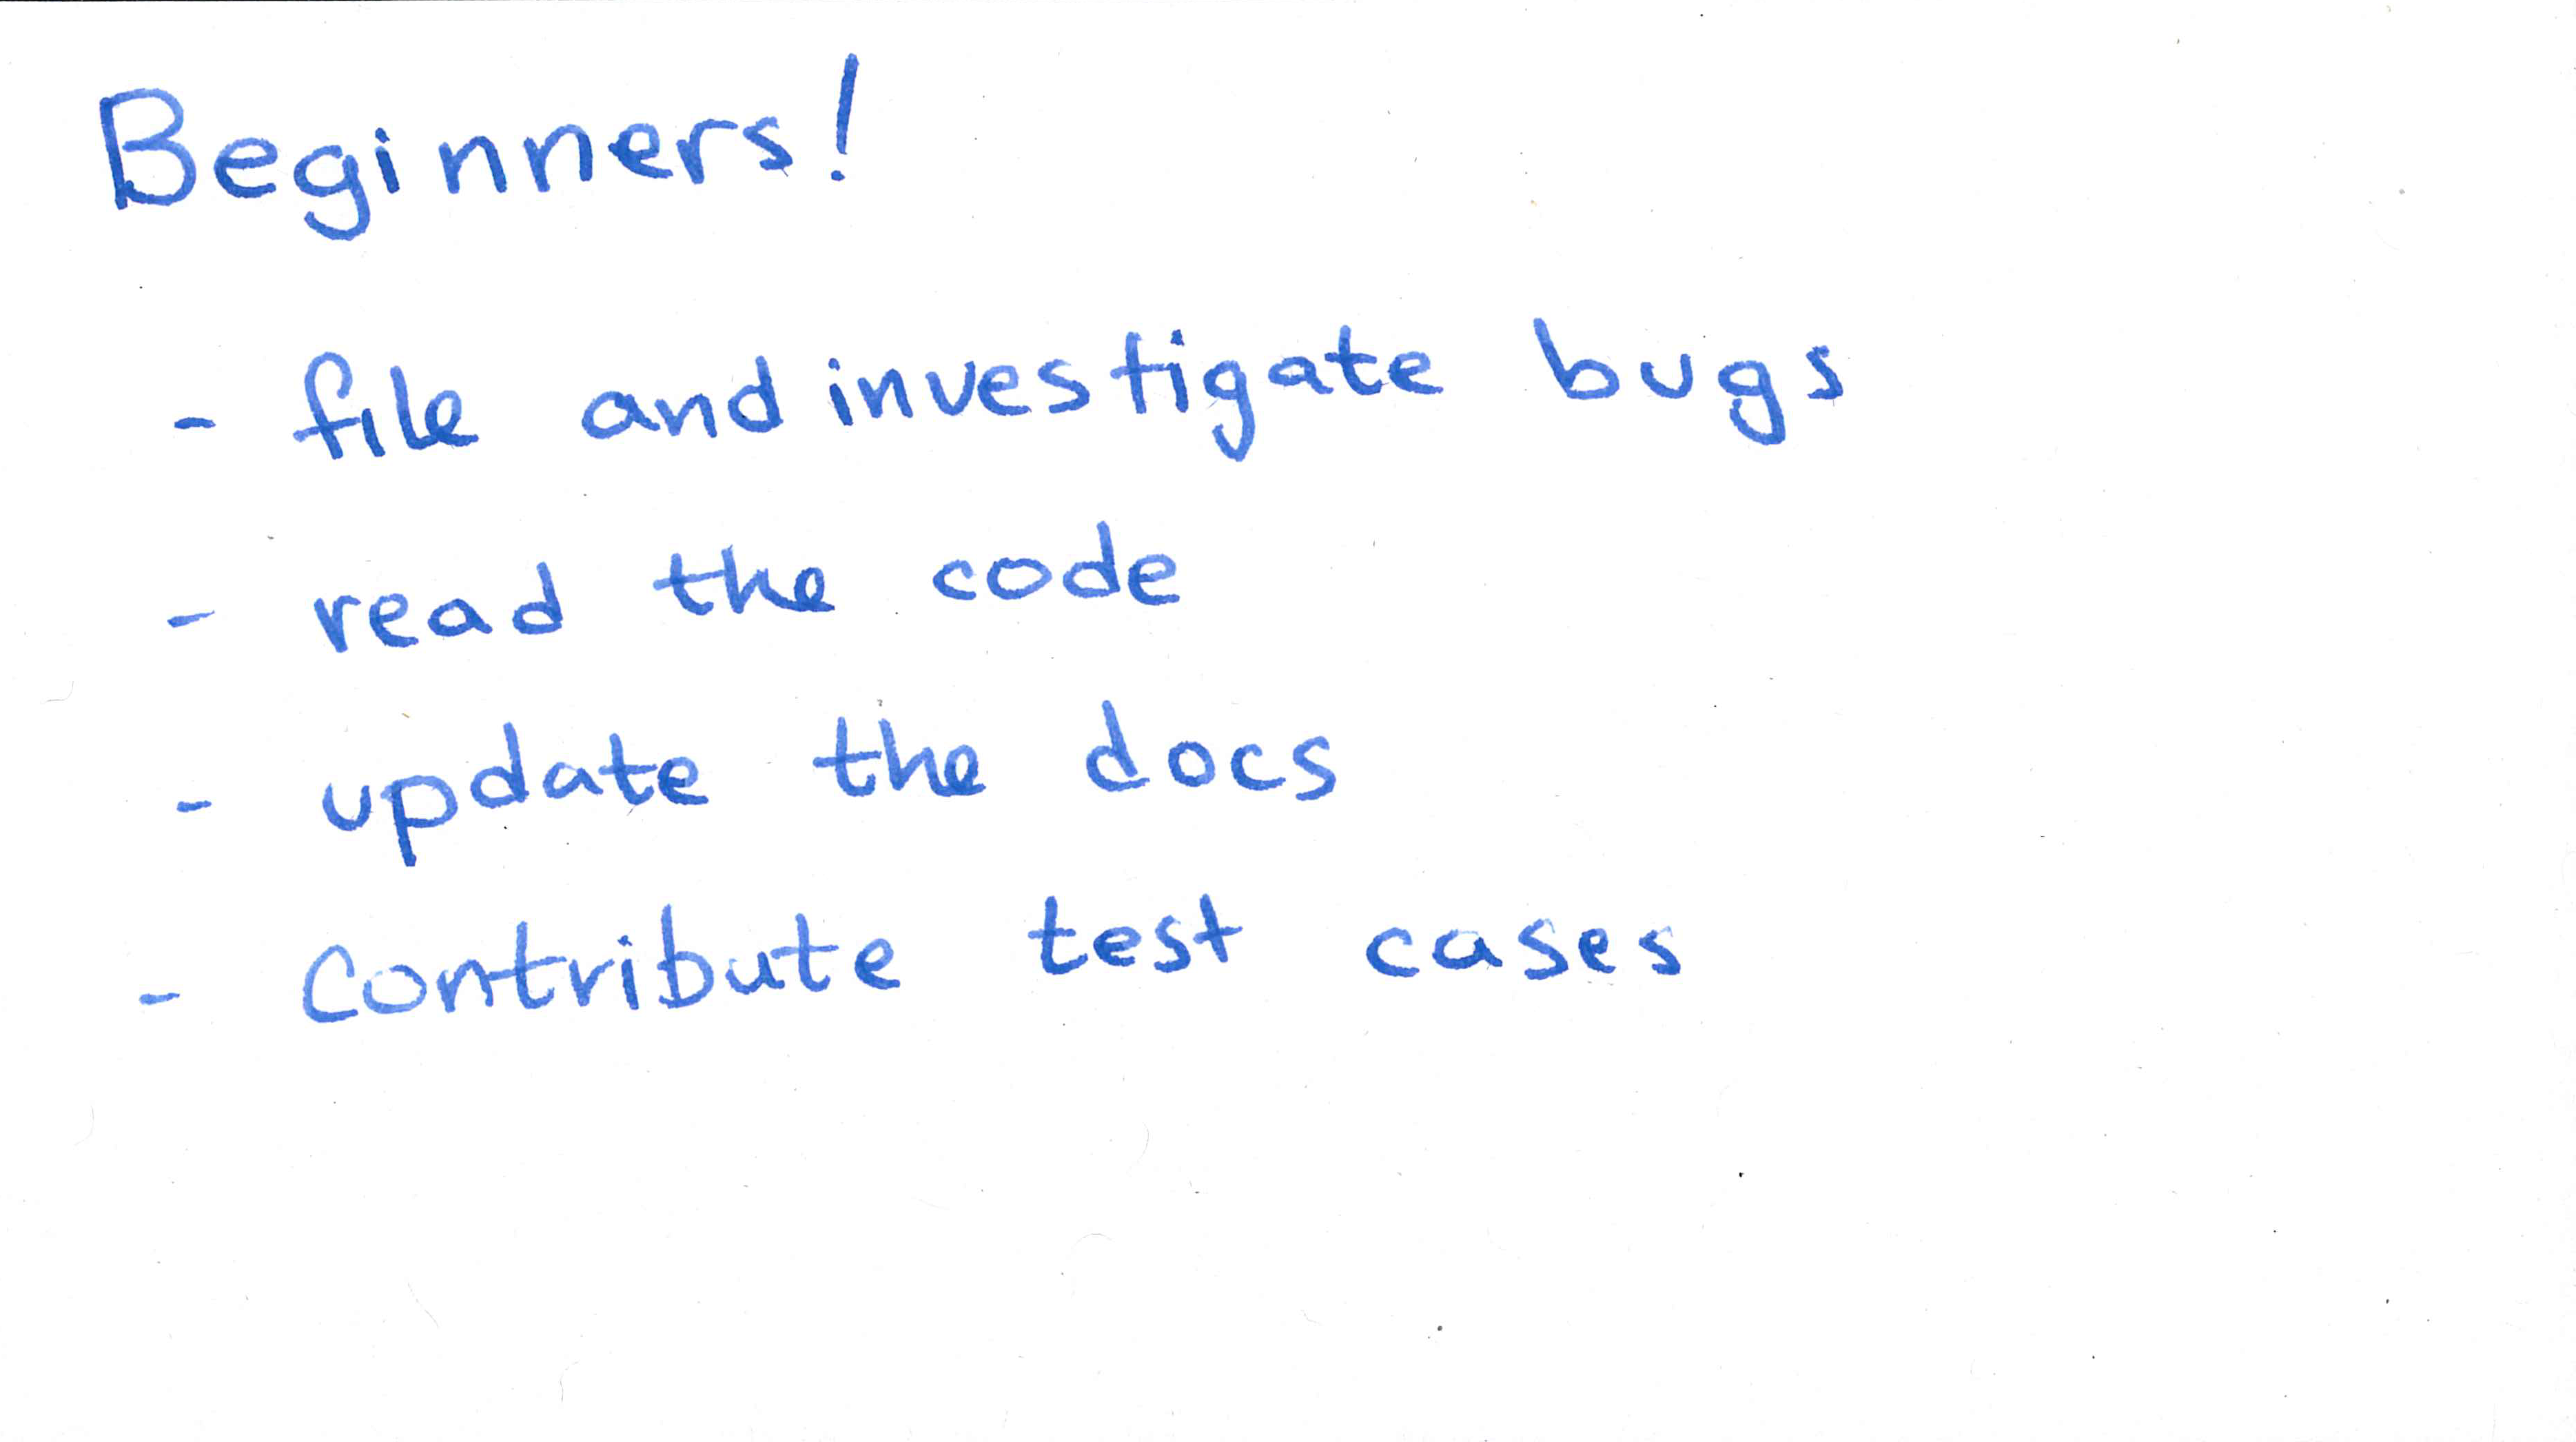 Beginners!
- file and investigate bugs
- read the code
- update the docs
- contribute test cases